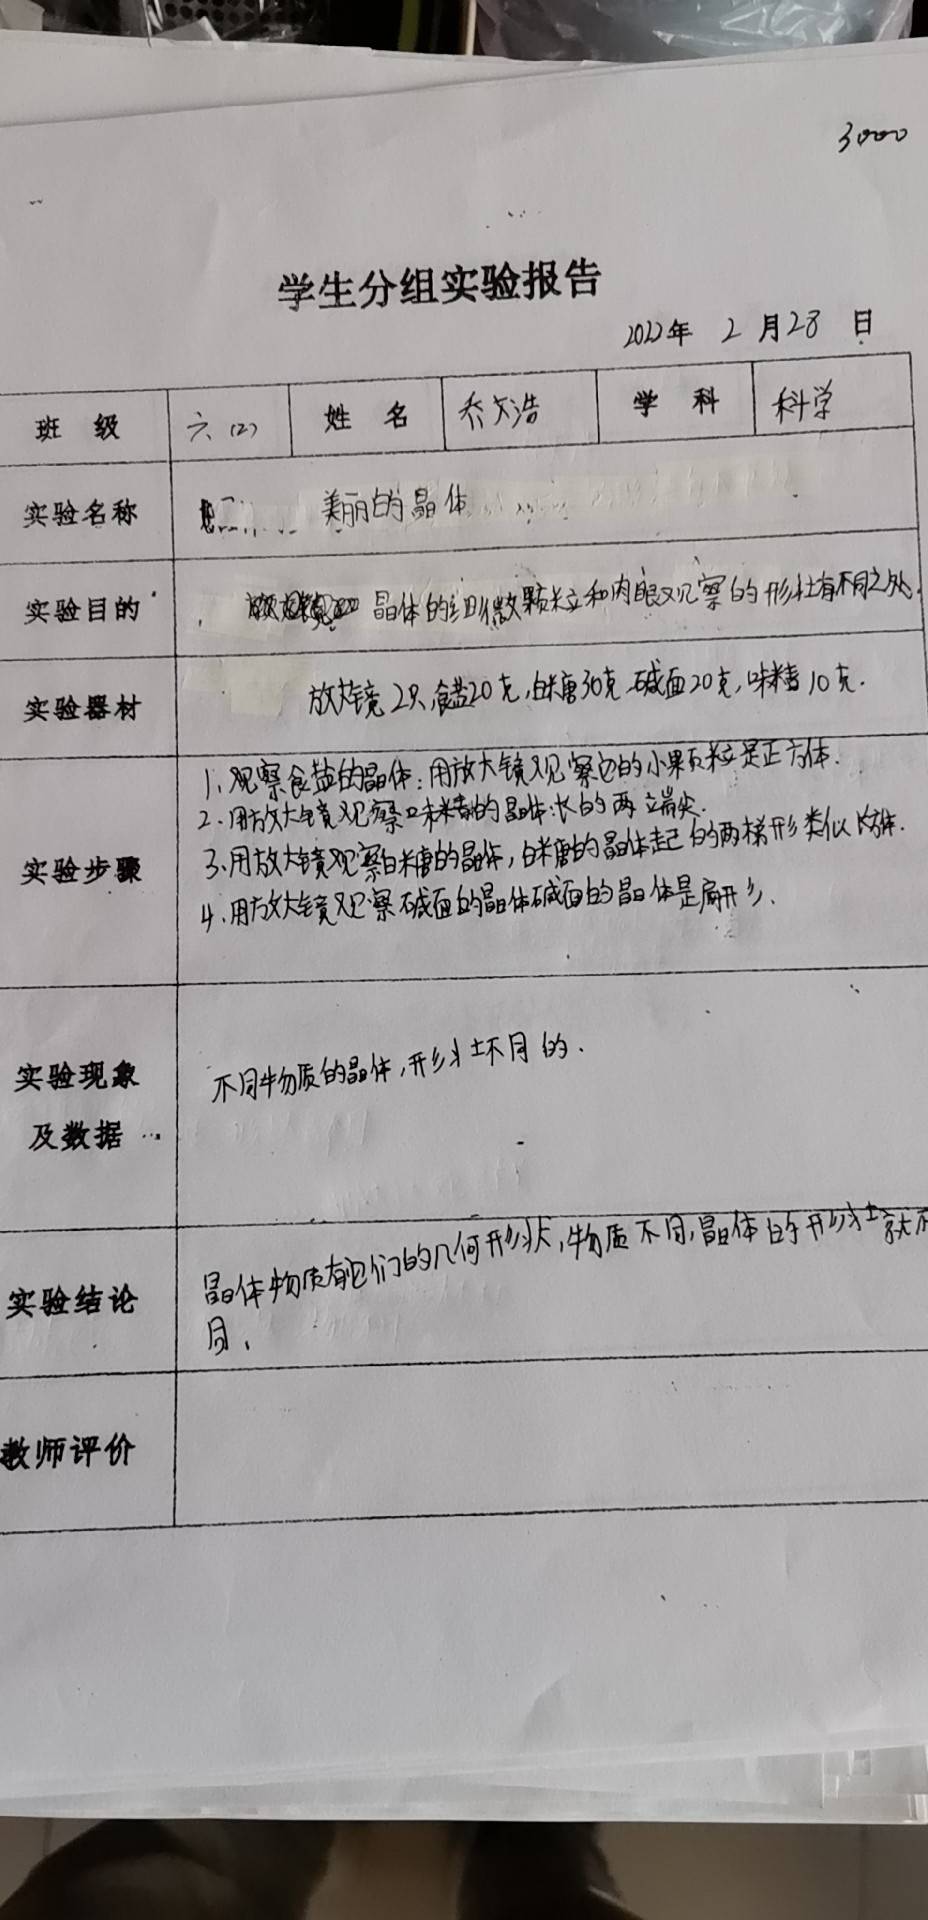 3000
学生分组实验报告
2022年 2 月28 日
班 级 六(2) 姓 名 乔文浩 学 科 科学
实验名称 美丽的晶体
实验目的 晶体的细微颗粒和肉眼观察的形状有不同之处.
实验器材 放大镜2只,食盐20克,白糖30克,碱面20克,味精10克.
1.观察食盐的晶体:用放大镜观察它的小颗粒是正方体.
2.用放大镜观察味精的晶体:长的两端尖.
3.用放大镜观察白糖的晶体,白糖的晶体起的两梯形类似体.
实验步骤
4.用放大镜观察碱面的晶体碱面的晶体是扁形.
实验现象
及数据
不同物质的晶体,形状不同的.
实验结论
晶体物质有它们的几何形状,物质不同,晶体的形状就不
同.
教师评价